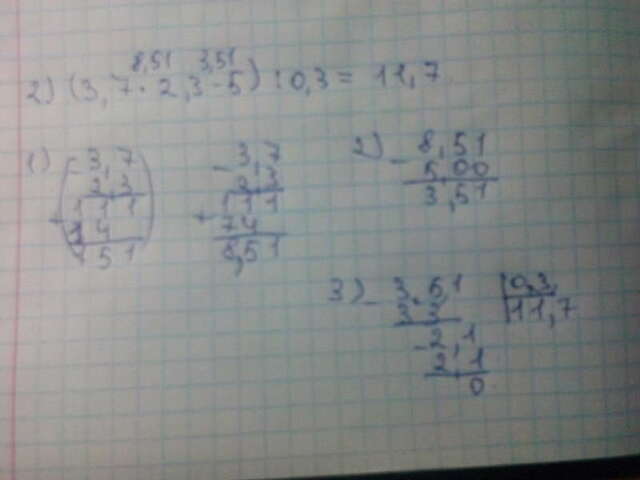 8,51 3,51
2) (3,7 · 2,3 - 5) : 0,3 = 11,7
1) 3,7 3,7 2) - 8,51
2,3 2,3 5,00
+ 111 + 111 3,51
74 74
151 8,51
3) - 3,51 0,3
3,3 11,7
- 2,1
2,1
0